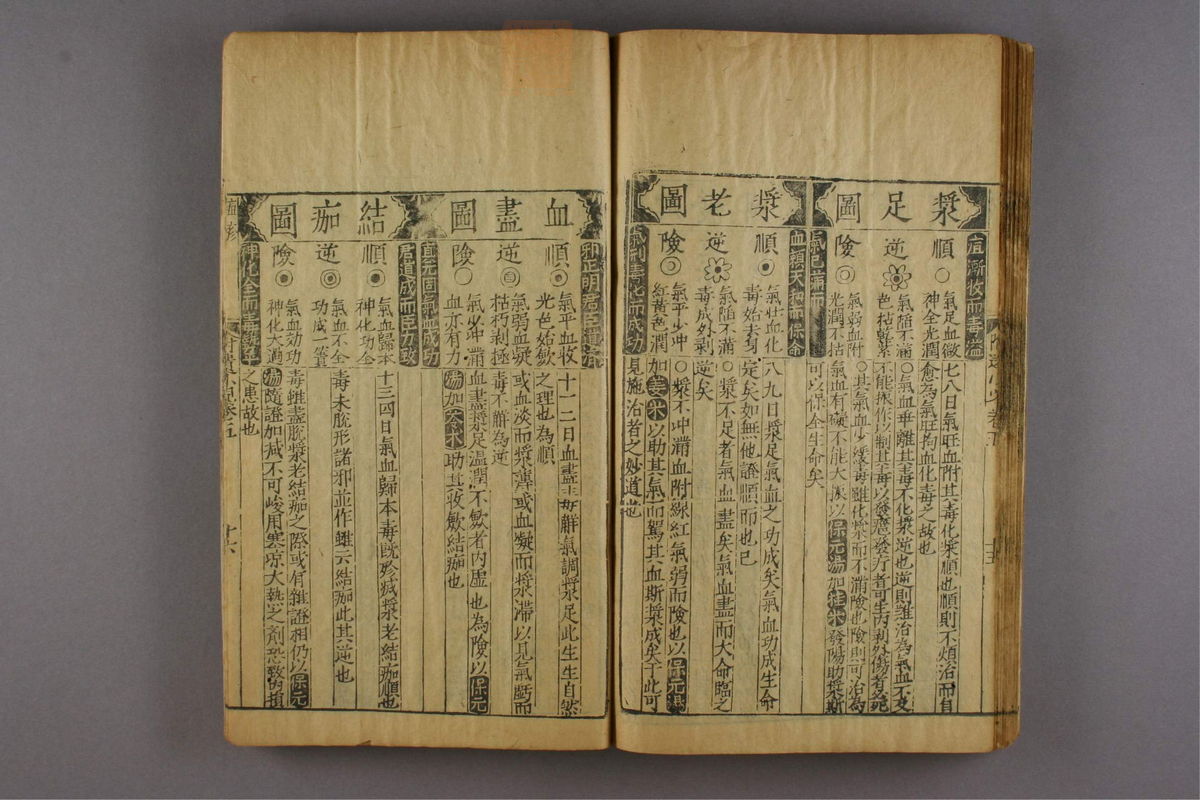 漿足圖
宜漸收而毒溢
順
氣足血斂
神全光潤
七八日氣旺血附其毒化漿順也順則不煩治而自
愈為氣旺拘血化毒之故也
逆
氣陷不滿
色枯散紫
氣血乖離其毒不化漿逆也逆則難治為氣血不
不能振作以制其毒以發瘡發疔者可生內剝外傷者必死
險
氣弱血附
光潤不枯
其氣血少緩毒雖化漿而不滿險也險則可治為
氣血有礙不能大振以保元湯加桂米發陽助漿斯
可以保全生命矣
氣已滿而
血賴天和而保命
漿老圖
順
氣壯血化
毒始考身
八九日漿足氣血之功成矣氣血功成生命
定矣如無他證順而也已
逆
氣陷不滿
毒成外剝
漿不足者氣血盡矣氣血盡而大命臨之
逆矣
險
氣平少冲
紅黃色潤
漿不冲滿血附線紅氣弱而險也以保元湯
加姜米以助其氣而駕其血斯漿成矣于此可
見施治者之妙道也
氣制毒化而成功
血盡圖
邪正明君臣道泠
順
氣平血收
光色始斂
十一二日血盡毒解氣調漿足此生生自然
之理也為順
逆
氣弱血凝
枯朽剥極
或血淡而漿薄或血凝而漿滯以見氣虧而
毒不解為逆
險
氣必冲滿
血亦有力
血盡漿足溫潤不斂者內虛也為險以保元
湯加苓朮助其收斂結痂也
宜元固氣血成功
結痂圖
君道成而臣力致
順
氣血歸本
神化功全
十三四日氣血歸本毒既殄滅漿老結痂順也
逆
氣血不全
功成一簣
毒未脫形諸邪並作雖云結痂此其逆也
險
氣血効功
神化大滿
毒雖盡脫漿老結痂之際或有雜證相仍以保元
湯隨證加減不可峻用寒凉大熱之劑恐致內損
之患故也
神化全而毒
十六